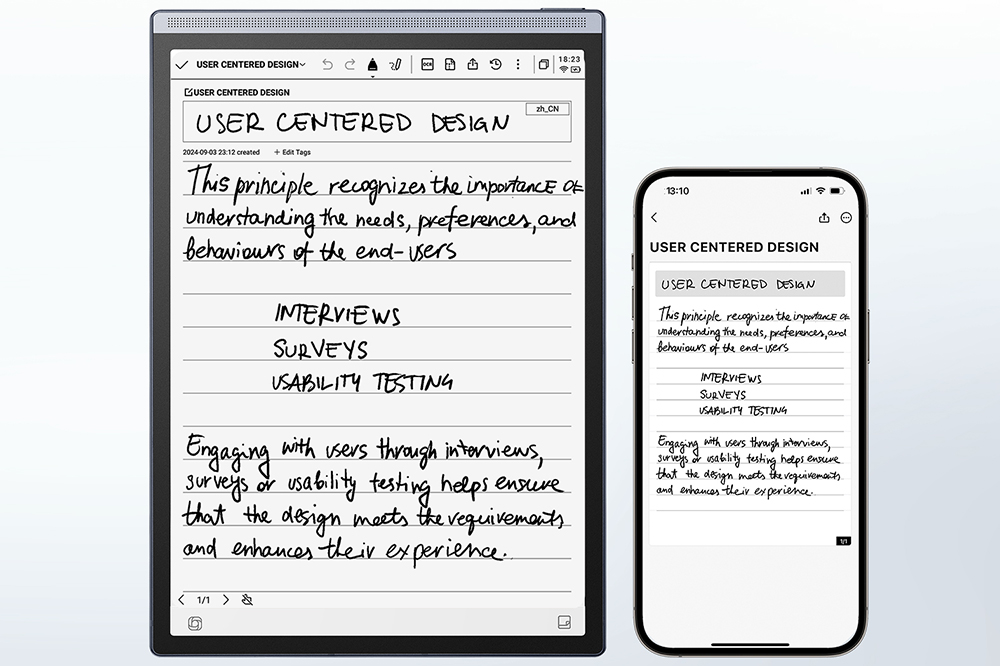 USER CENTERED DESIGN
18:23
USER CENTERED DESIGN
zh_CN
USER CENTERED DESIGN
2024-09-03 23:12 created + Edit Tags
This principle recognizes the importance of
understanding the needs, preferences, and
behaviours of the end-users
INTERVIEWS
SURVEYS
USABILITY TESTING
Engaging with users through interviews,
surveys or usability testing helps ensure
that the design meets the requirements
and enhances their experience.
1/1
13:10
USER CENTERED DESIGN
USER CENTERED DESIGN
This principle recognizes the importance of
understanding the needs, preferences, and
behaviours of the end-users
INTERVIEWS
SURVEYS
USABILITY TESTING
Engaging with users through interviews,
surveys or usability testing helps ensure
that the design meets the requirements
and enhances their experience.
1/1